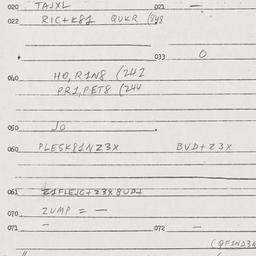 020 TAJXL 021 —
022 RIC+K81 QUKR (848
033 O
040 HO, R1N8 (242
PR1, PET8 (244
050 JO
060 PLESK81NZ3X BUD+Z3X
061 Z1FLEJG+Z3X BUD+
070 ZUMP = —
071 — 072 —
(QF1ND36